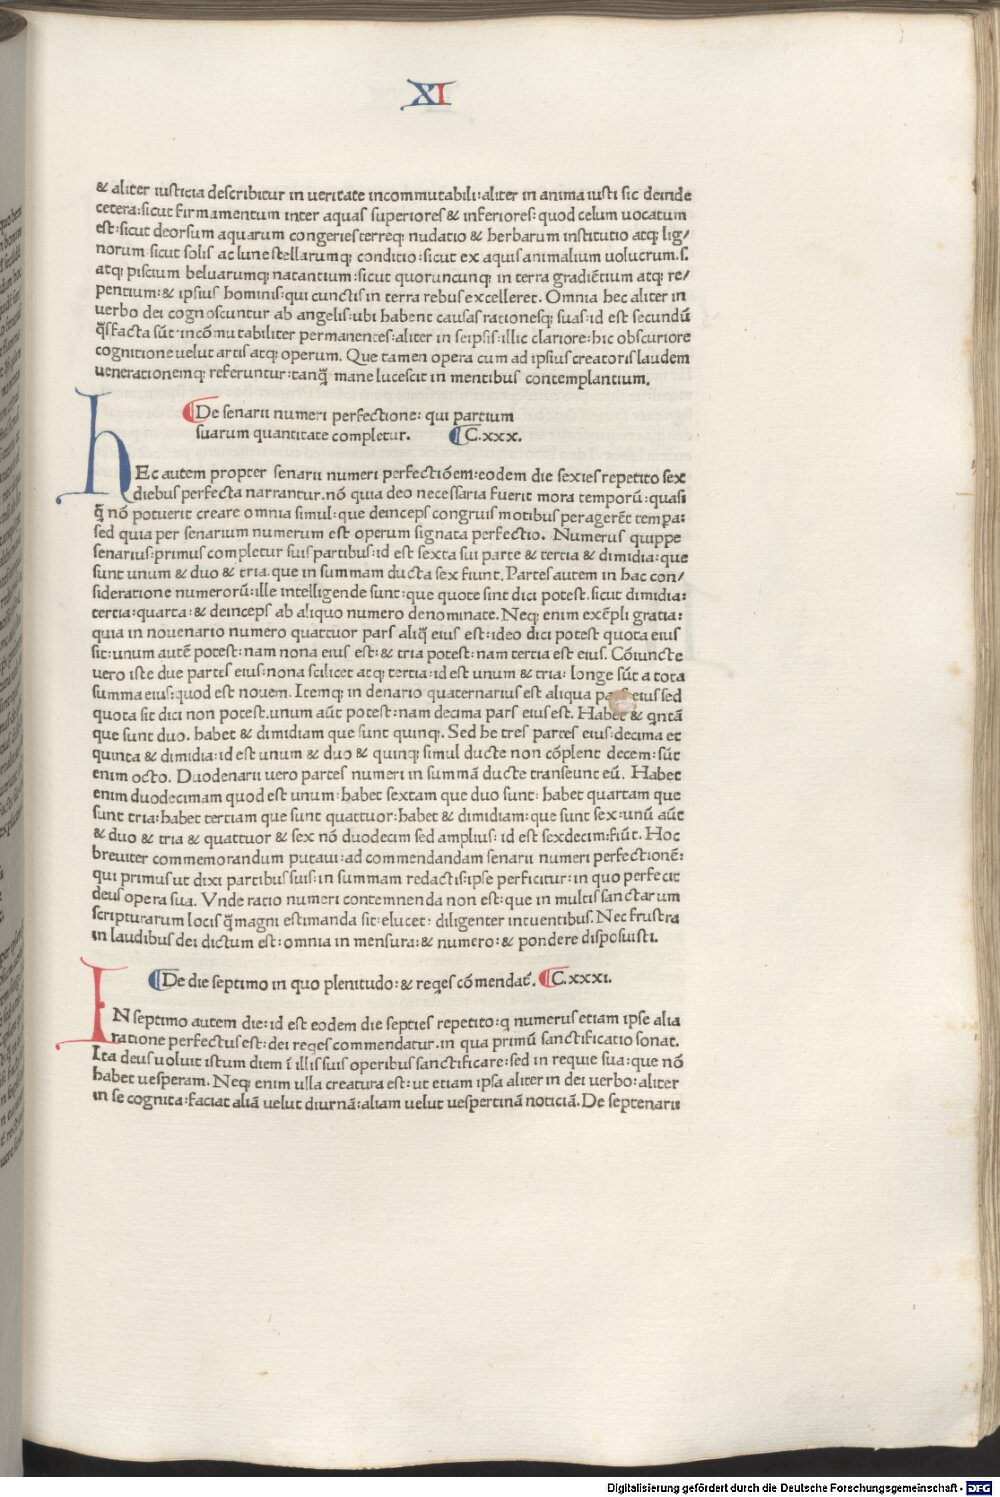 XI
& aliter iusticia describitur in ueritate incommutabili:aliter in anima iusti sic deinde
cetera:sicut firmamentum inter aquas superiores & inferiores:quod celum uocatum
est:sicut deorsum aquarum congeries terreq; nudatio & herbarum institutio atq; lig/
norum sicut solis ac lune stellarumq; conditio:sicut ex aquis animalium uolucrum.s.
atq; piscium beluarumq; natantium:sicut quoruncunq; in terra gradiētium atq; re/
pentium:& ipsius hominis:qui cunctis in terra rebus excelleret. Omnia hec aliter in
uerbo dei cognoscuntur ab angelis:ubi habent causas rationesq; suas:id est secundū
q̄s facta sūt incōmutabiliter permanentes:aliter in seipsis:illic clariore:hic obscuriore
cognitione uelut artis atq; operum. Que tamen opera cum ad ipsius creatoris laudem
uenerationemq; referuntur:tanq̄ mane lucescit in mentibus contemplantium.
De senarii numeri perfectione: qui partium
suarum quantitate completur. C.xxx.
hEc autem propter senarii numeri perfectiōem:eodem die sexies repetito sex
diebus perfecta narrantur.nō quia deo necessaria fuerit mora temporū:quasi
q̄ nō potuerit creare omnia simul:que deinceps congruis motibus peragerēt tempa:
sed quia per senarium numerum est operum signata perfectio. Numerus quippe
senarius:primus completur suis partibus:id est sexta sui parte & tertia & dimidia:que
sunt unum & duo & tria.que in summam ducta sex fiunt. Partes autem in hac con/
sideratione numerorū:ille intelligende sunt:que quote sint dici potest.sicut dimidia:
tertia:quarta:& deinceps ab aliquo numero denominate. Neq; enim exēpli gratia:
quia in nouenario numero quattuor pars aliq̄ eius est:ideo dici potest quota eius
sit:unum autē potest:nam nona eius est:& tria potest:nam tertia est eius. Cōiuncte
uero iste due partes eius:nona scilicet atq; tertia:id est unum & tria: longe sūt a tota
summa eius:quod est nouem. Itemq; in denario quaternarius est aliqua pars eius sed
quota sit dici non potest.unum aūt potest:nam decima pars eius est. Habet & qntā
que sunt duo. habet & dimidiam que sunt quinq;. Sed he tres partes eius:decima et
quinta & dimidia:id est unum & duo & quinq; simul ducte non cōplent decem:sūt
enim octo. Duodenarii uero partes numeri in summā ducte transeunt eū. Habet
enim duodecimam quod est unum:habet sextam que duo sunt:habet quartam que
sunt tria:habet tertiam que sunt quattuor:habet & dimidiam:que sunt sex:unū aūt
& duo & tria & quattuor & sex nō duodecim sed amplius: id est sexdecim:fiūt. Hoc
breuiter commemorandum putaui:ad commendandam senarii numeri perfectionē:
qui primus ut dixi partibus suis:in summam redactis:ipse perficitur:in quo perfecit
deus opera sua. Vnde ratio numeri contemnenda non est:que in multis sanctarum
scripturarum locis q̄ magni estimanda sit:elucet: diligenter intuentibus. Nec frustra
in laudibus dei dictum est:omnia in mensura:& numero:& pondere disposuisti.
De die septimo in quo plenitudo:& reqes cōmendat̄. C.xxxi.
IN septimo autem die:id est eodem die septies repetito:q numerus etiam ipse alia
ratione perfectus est:dei reqes commendatur.in qua primū sanctificatio sonat.
Ita deus uoluit istum diem ī illis suis operibus sanctificare:sed in requie sua:que nō
habet uesperam. Neq; enim ulla creatura est:ut etiam ipsa aliter in dei uerbo:aliter
in se cognita:faciat aliā uelut diurnā:aliam uelut uespertinā noticiā. De septenarii
Digitalisierung gefördert durch die Deutsche Forschungsgemeinschaft - DFG